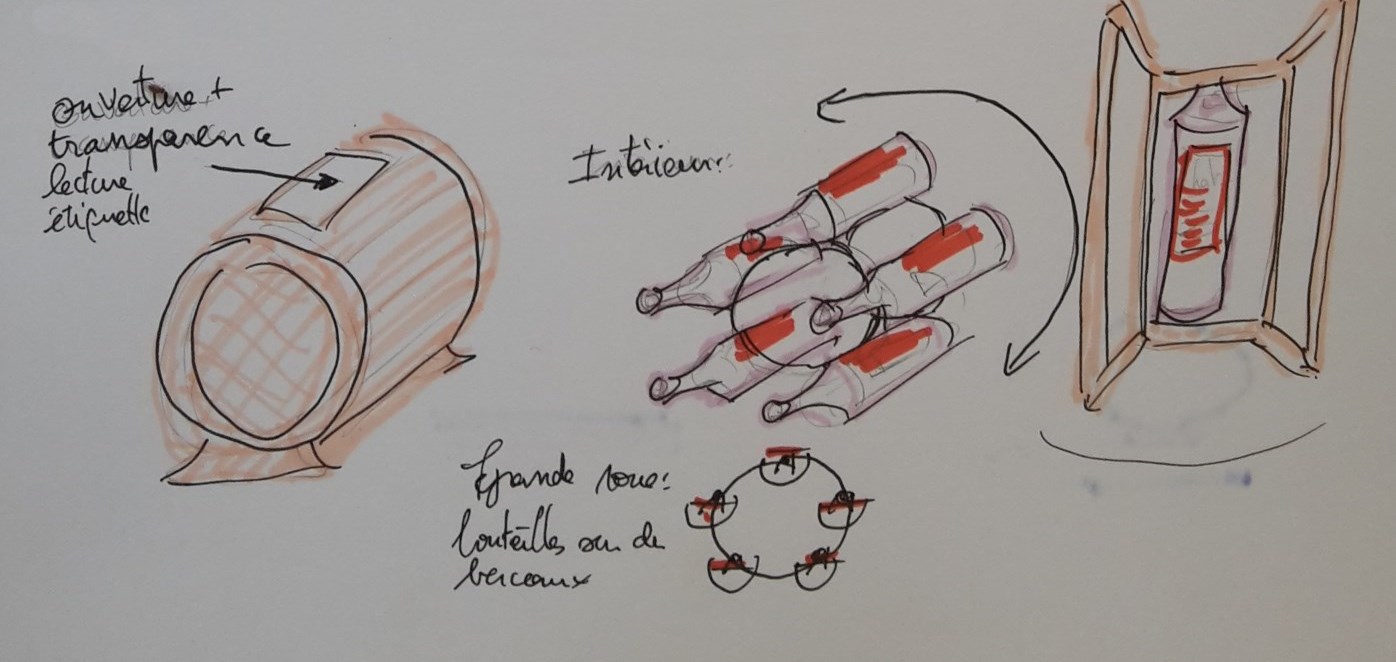 ouverture +
transparence
lecture
étiquette
Intérieur:
grande roue:
bouteilles sur des
berceaux